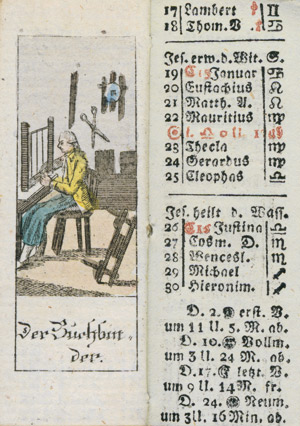 Der Buchbin=
der.
17 Lambert ♊
18 Thom. V.
Jes. erw. d. Wit. S.
19 Januar
20 Eustachius ♌
21 Matth. A. ♌
22 Mauritius ♍
23 Thecla ♍
24 Gerardus ♍
25 Cleophas ♎
Jes. heilt d. Wass.
26 Justina ♎
27 Cosm. D. ♏
28 Wencesl. ♏
29 Michael
30 Hieronim.
D. 2. erst. V.
um 11 U. 5. M. ab.
D. 10. Vollm.
um 3 U. 24 M. ab.
D. 17. letzt. V.
um 9 U. 14 M. fr.
D. 24. Neum.
um 3 U. 16 Min. ab.